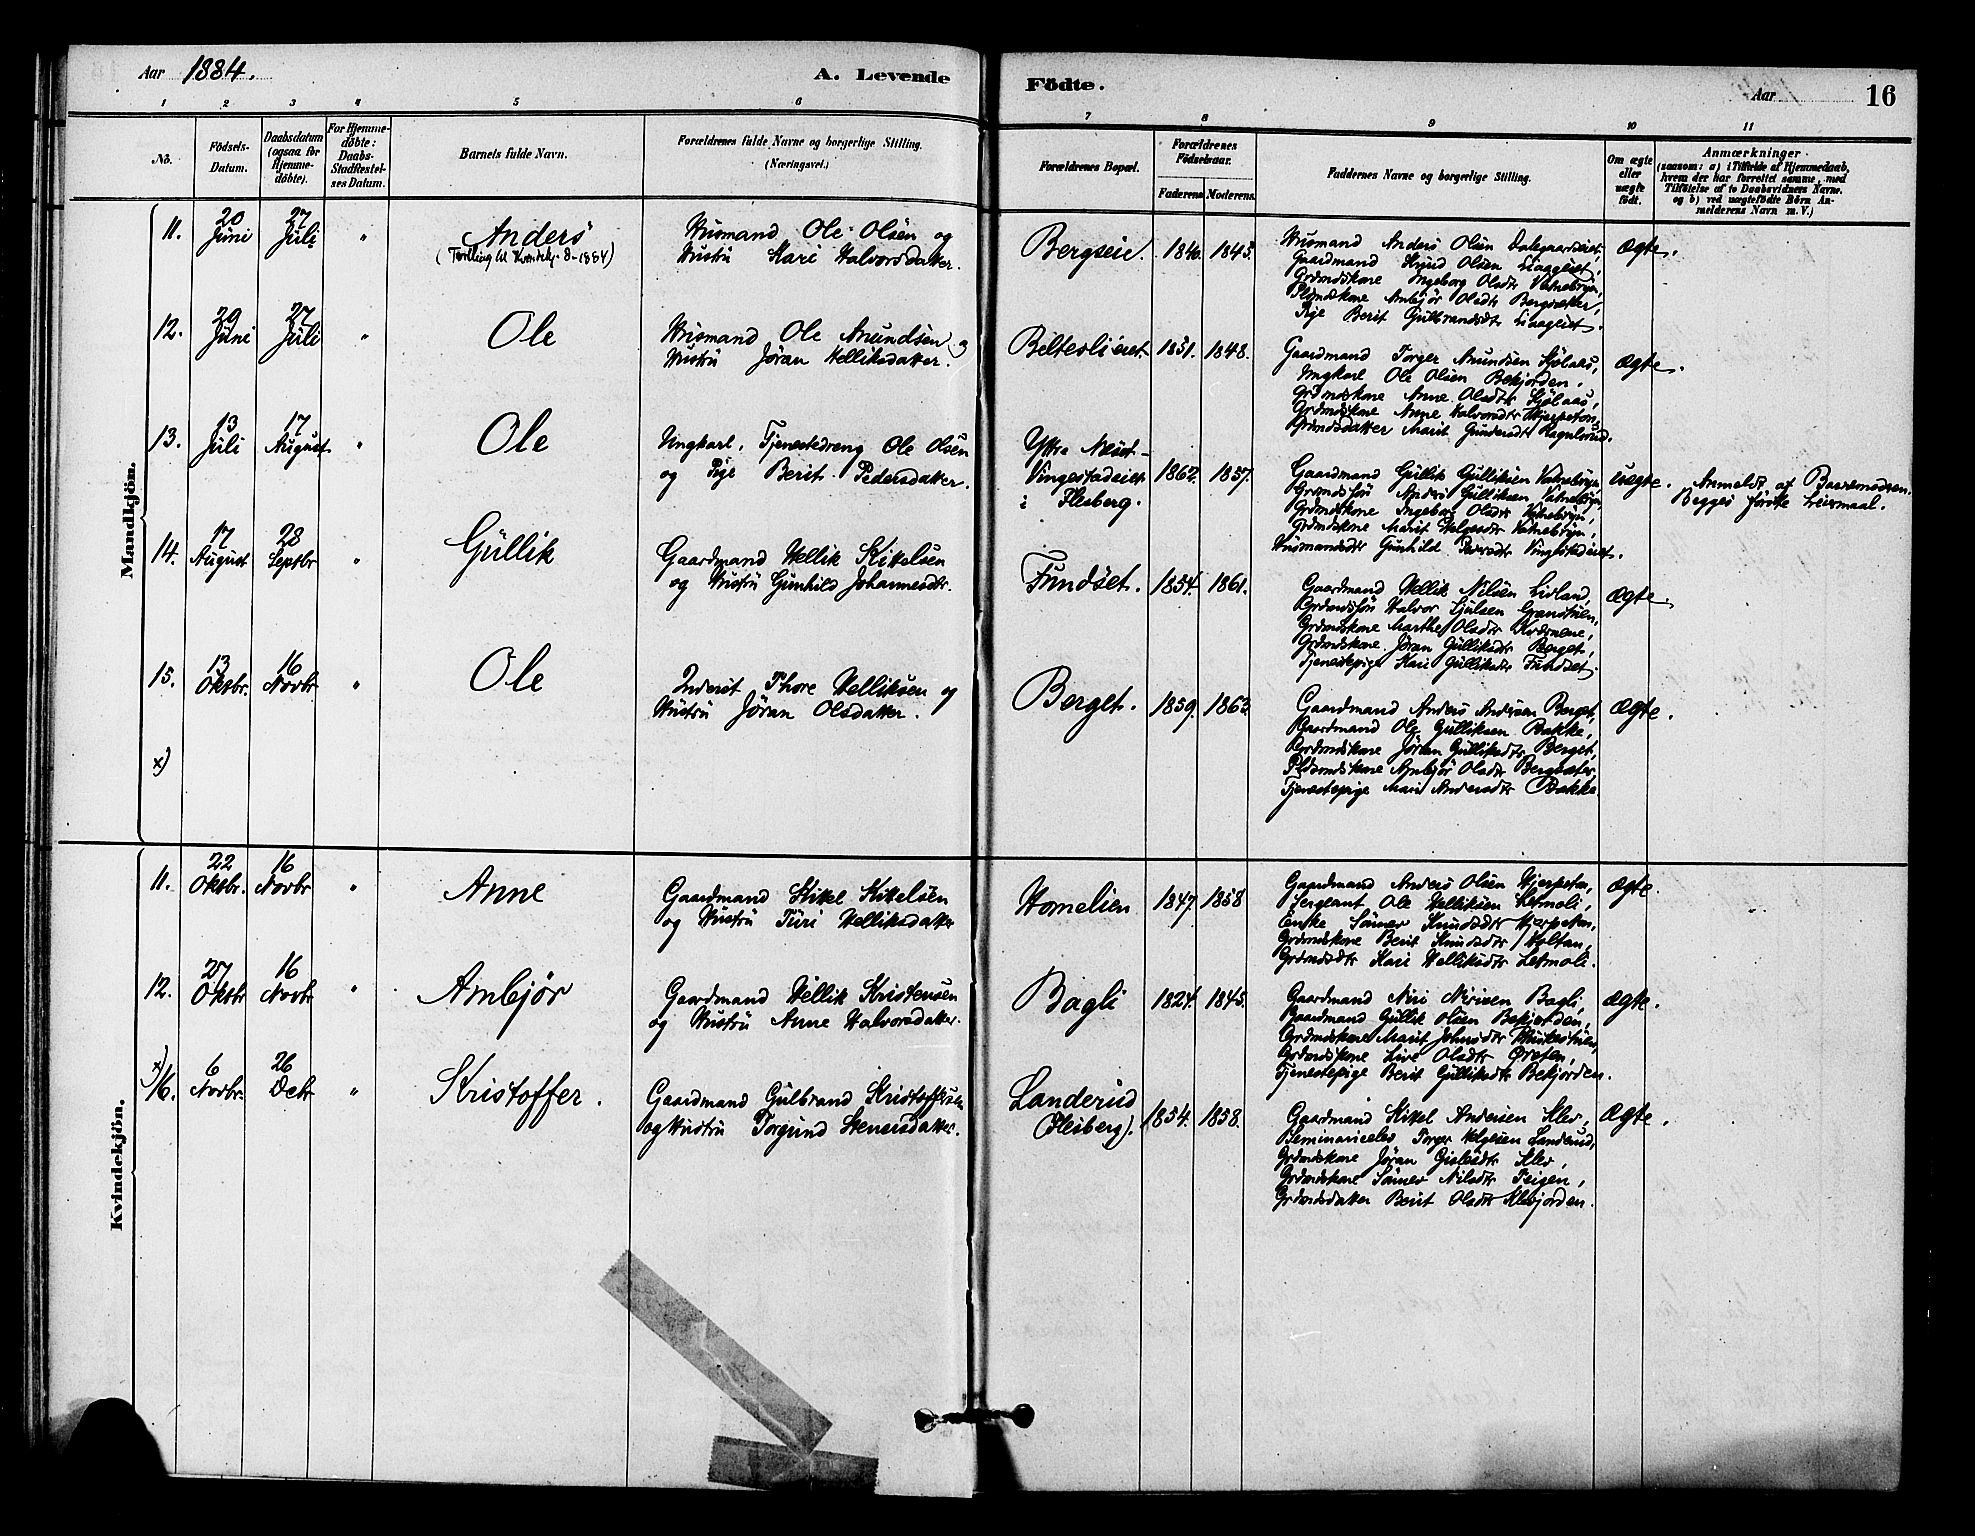 Aar 1884.
A. Levende
Födte.
Aar
16
1 2 3 4 5 6 7 8 9 10 11
No.
Födsels-Datum.
Daabsdatum (ogsaa for Hjemme-døbte).
For Hjemme-døbte: Daabs-Stadfæstel-ses Datum.
Barnets fulde Navn.
Forældrenes fulde Navne og borgerlige Stilling.
(Næringsvei.)
Forældrenes Bopæl.
Forældrenes Födselsaar.
Faderens Moderens
Faddernes Navne og borgerlige Stilling.
Om ægte eller uægte født.
Anmærkninger
(saasom: a) i Tilfælde af Hjemmedaab,
hvem der har forrettet samme, med
Tilföielse af to Daabsvidners Navne.
og b) ved uægtefødte Börn An-
melderens Navn m. V.)
Mandkjön.
11.
20 Juni
27 Juli
"
Anders
(Tvilling til Kvindekj. 8-1884)
Husmand Ole Olsen og
Hustru Kari Halvorsdatter.
Bergseie.
1846. 1845.
Husmand Anders Olsen
Gaardmand Knud Olsen Liaageiet,
Grdmdskone Ingeborg Olsdtr Vatnebryn,
Pldmdskone Ambjør Olsdtr Bergsæter,
Pige Berit Gulbrandsdtr Liaageiet.
ægte.
12.
29 Juni
27 Juli
"
Ole
Husmand Ole Amundsen og
Hustru Jøran Helliksdatter.
Belteslieiet
1851. 1848.
Gaardmand Torger Amundsen Hjølaas,
Ungkarl Ole Olsen Bekjorden,
Grdmdskone Anne Olsdtr
Grdmdskone Anne Halvorsdtr
Grdmdsdatter Marit Gundersdtr
ægte.
13.
13 Juli
17 August
"
Ole
Ungkarl, Tjenestedreng Ole Olsen
og Pige Berit Pedersdatter.
Yttre Næset-
Vingestadeiet
i Flesberg.
1862. 1857.
Gaardmand Gullik Gulliksen Vatnebryn,
Grdmdssøn Anders Gulliksen Vatnebryn,
Grdmdskone Ingeborg Olsdtr Vatnebryn,
Grdmdskone Marit Helgesdtr Vatnebryn,
Husmandsdtr Gunhild Pedersdtr Vingestadeiet.
uægte.
Anmeldt af Barnemoderen.
Begges første Leiermaal.
14.
17 August
28 Septbr
"
Gullik
Gaardmand Hellik Kittelsen
og Hustru Gunhild Johannesdtr.
Fundset.
1854. 1861.
Gaardmand Hellik Nilsen Livland,
Grdmdssøn Halvor
Grdmdskone Marthe Olsdtr
Grdmdskone Jøran Gulliksdtr Berget,
Tjenestepige Kari Gulliksdtr Fundset.
ægte.
15.
13 Oktbr.
16 Novbr
"
Ole
Inderst Thore Helliksen og
Hustru Jøran Olsdatter.
Berget.
1859. 1863
Gaardmand Anders Andersen Berget,
Gaardmand Ole Gulliksen Bakke,
Grdmdskone Jøran Gulliksdtr Berget,
Pldsmdskone Ambjør Olsdtr Bergsæter,
Tjenestepige Mari Andersdtr Bakke.
ægte.
x)
Kvindekjön.
11.
22 Oktbr.
16 Novbr
"
Anne
Gaardmand Kittel Kittelsen
og Hustru Turi Helliksdatter
Homelien
1847. 1858
Gaardmand Anders Olsen Hjerpetan,
Sergeant Ole Helliksen Letmoli,
Enke Sønnev Knudsdtr Hjerpetan,
Grdmdskone Berit Knudsdtr Holtan,
Grdmdsdtr Kari Helliksdtr Letmoli.
ægte.
12.
27 Oktbr
16 Novbr
"
Ambjør
Gaardmand Hellik Kristensen
og Hustru Anne Halvorsdatter.
Bagli
1824. 1845.
Gaardmand Niri Nirisen Bagli,
Gaardmand Gullik Olsen Bekjorden,
Grdmdskone Marit Johnsdtr
Grdmdskone Live Olsdtr
Tjenestepige Berit Gulliksdtr Bekjorden.
ægte.
x)
16.
6 Novbr.
26 Decbr
"
Kristoffer.
Gaardmand Gulbrand Kristoffersen
og Hustru Torgund Stenersdatter.
Landerud
(Flesberg).
1854. 1858.
Gaardmand Kittel Andersen Klev,
Seminarieelev Torger Helgesen Landerud,
Grdmdskone Jøran Gislesdtr Klev,
Grdmdskone Sønnev Nilsdtr Teigen,
Grdmdsdatter Berit Olsdtr Klevjorden.
ægte.